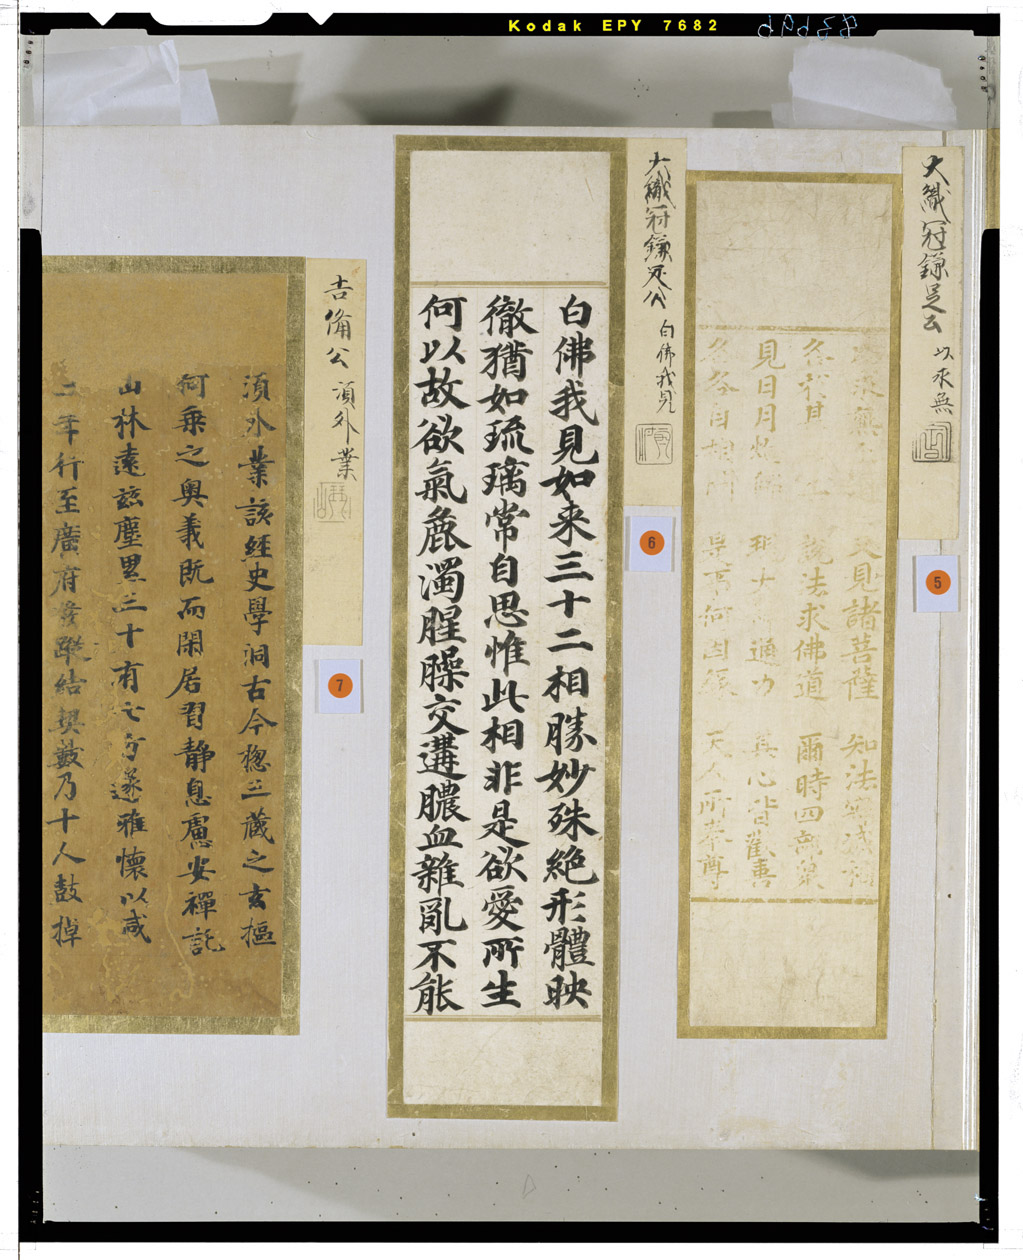 Kodak EPY 7682
83696
大織冠鎌足公 以来無
5
見諸菩薩 知法
説法求佛道 爾時四
見日月 通力 其心皆歡喜
各各自相問 是事何因 天人所奉尊
大織冠鎌足公 白佛我見
6
白佛我見如来三十二相勝妙殊絶形體映
徹猶如琉璃常自思惟此相非是欲愛所生
何以故欲氣麁濁腥臊交遘膿血雜亂不能
吉備公 湏外業
7
湏外業該経史學洞古今惣三藏之玄樞
何乗之奥義既而閑居習静息慮安禪託
山林遠茲塵累三十有七方遂雅懷以咸
二年行至廣府發蹤結契數乃十人鼓掉